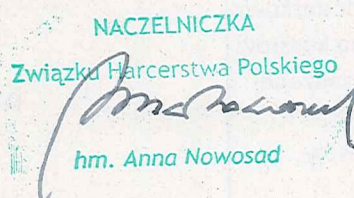 NACZELNICZKA
Związku Harcerstwa Polskiego
hm. Anna Nowosad